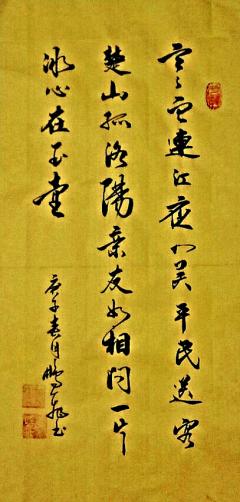 寒雨連江夜入吴平明送客
楚山孤洛陽親友如相問一片
冰心在玉壺
庚子春月鵬飛书